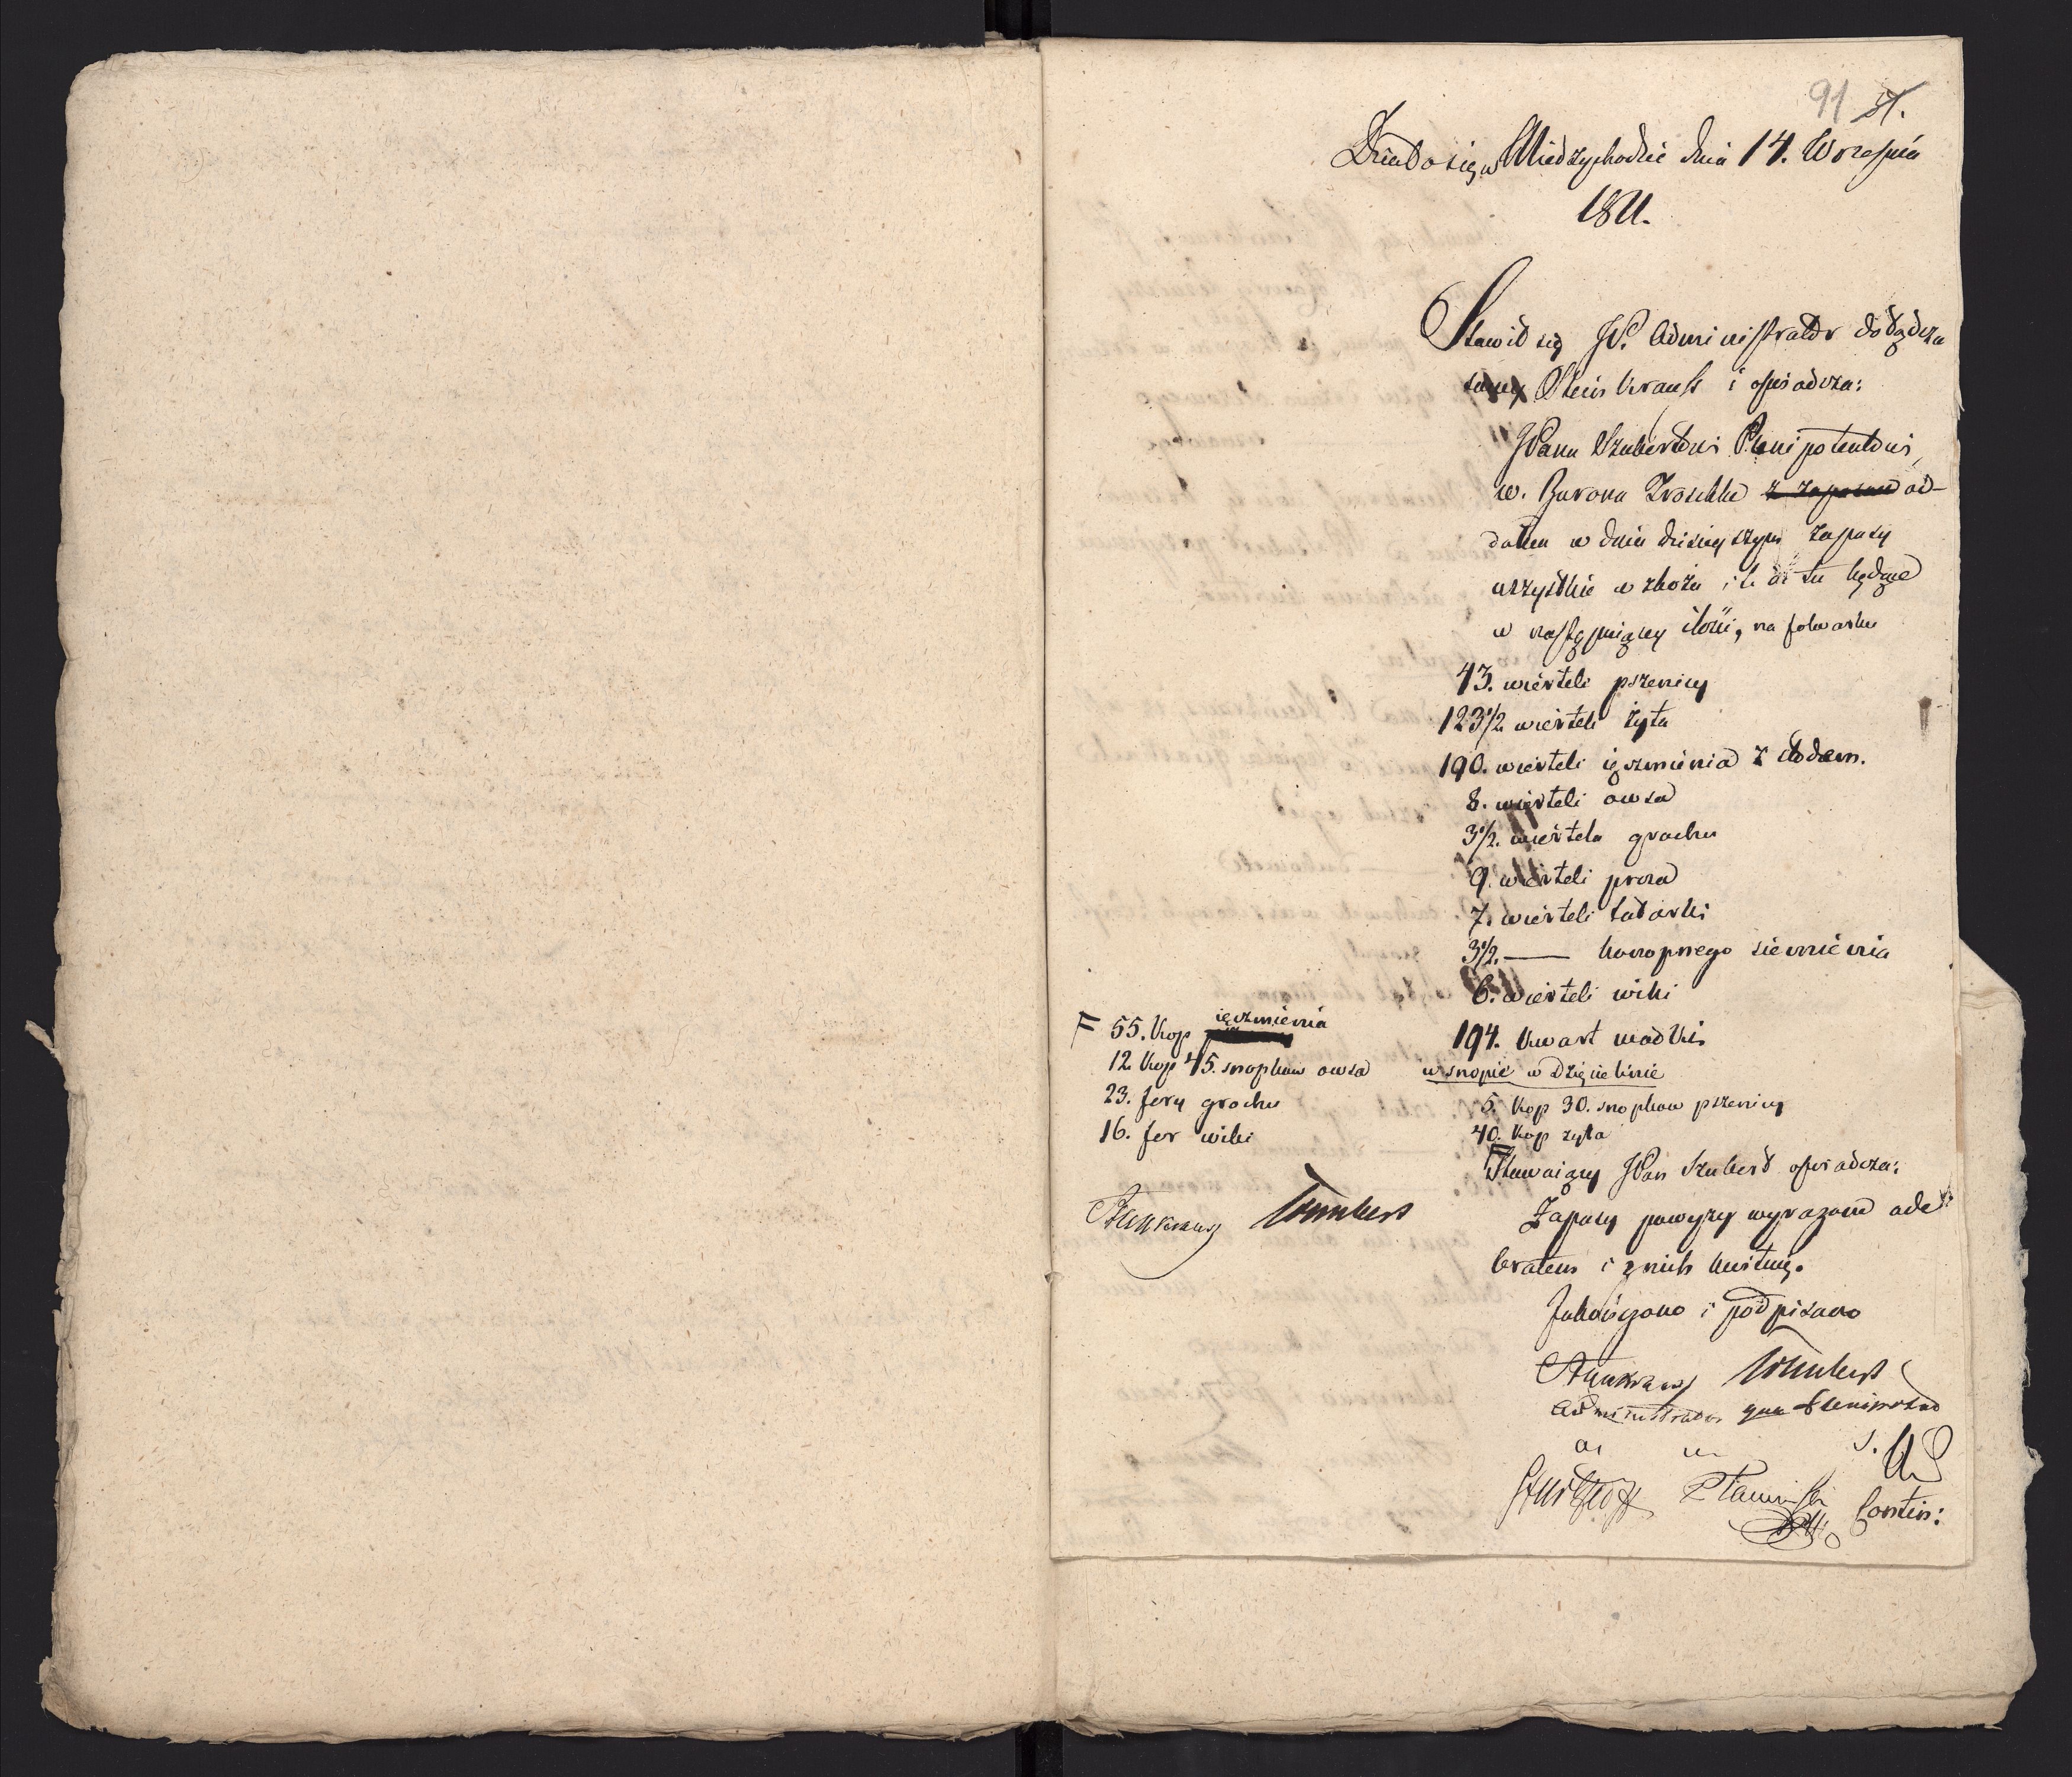 91 51.
Działo się w Międzychodzie dnia 14. Września
1821.
Stawił się JP. Administrator dotądcza
sowy Steinkrauss i oświadcza:
JPanu Szubertowi Plenipotentowi
w. Barona Troschke z zapasow od-
dałem w dniu dzisieyszym zapasy
wszystkie w zbożu iakie tu będące
w następuiącey ilości, na folwarku
43. wierteli pszenicy
123 1/2 wierteli żyta
190. wierteli ięczmienia z słodem.
8. wierteli owsa
3 1/2. wiertela grochu
9. wierteli prosa
7. wierteli tatarki
3 1/2. — konopnego siemienia
6. wierteli wiki
194. kwart wodki.
w snopie w Dzięcielinie
5. kop 30. snopkow pszenicy
40. kop zyta
F
F 55. kop ięczmienia
12. kop 45. snopkow owsa
23. fery grochu
16. fer wiki
Steinkrauss Schubert
Stawaiący JPan Szubert oświadcza:
Zapasy powyzey wyrazone ode
brałem i z nich kwituię.
Zakończono i podpisano
Steinkrauss Schubert
Administrator qua Plenipotent
a. u. s.
Contin: